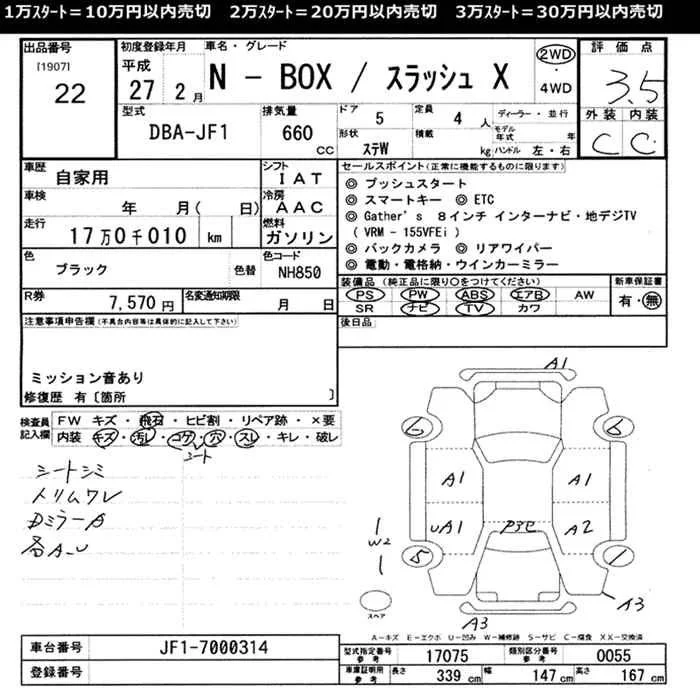 1万ｽﾀｰﾄ＝10万円以内売切　2万ｽﾀｰﾄ＝20万円以内売切　3万ｽﾀｰﾄ＝30万円以内売切
出品番号
[1907]
22
初度登録年月
平成
27 2月
車名・グレード
N － BOX / スラッシュ X
2WD
・
4WD
評価点
3.5
外装 内装
C C
型式
DBA-JF1
排気量
660 cc
ドア 5
定員 4 人
形状 ステW
積載 kg
ディーラー・並行
モデル年式 年
ハンドル 左・右
車歴
自家用
シフト
IAT
車検
年 月( 日)
冷房
AAC
走行
17万0千010 km
燃料
ガソリン
色
ブラック
色替
色コード
NH850
R券
7,570 円
名変通知期限
月 日
セールスポイント(正常に機能するものに限ります)
◎ プッシュスタート
◎ スマートキー ◎ ETC
◎ Gather's 8インチ インターナビ・地デジTV
( VRM - 155VFEi )
◎ バックカメラ ◎ リアワイパー
◎ 電動・電格納・ウインカーミラー
装備品(純正品に限り○をつけてください)
PS PW ABS エアB AW
SR ナビ TV カワ
新車保証書
有・無
後日品
注意事項申告欄(不具合内容等は具体的に記入して下さい)
ミッション音あり
修復歴 有〔箇所 〕
検査員記入欄
FW キズ・飛石・ヒビ割・リペア跡・×要
内装 キズ・汚レ・コゲ・穴・スレ・キレ・破レ
シート
シートシミ
トリムワレ
DミラーA
各A-U
A1
6
6
A1
A1
UA1
P3E
A2
W2
5
1
スペア
A3
A3
A－キズ E－エクボ U－凹み W－補修跡 S－サビ C－腐食 XX－交換済
車台番号
JF1-7000314
登録番号
型式指定番号 参考
17075
類別区分番号 参考
0055
車庫証明用 参考
長さ 339 cm
幅 147 cm
高さ 167 cm